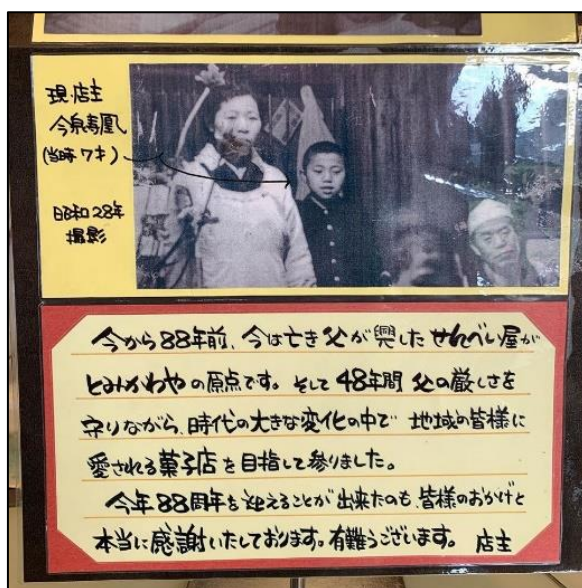 現店主
今泉寿凰
(当時7才)
昭和28年
撮影
今から88年前、今は亡き父が興したせんべい屋が
とみかわやの原点です。そして48年間父の厳しさを
守りながら、時代の大きな変化の中で地域の皆様に
愛される菓子店を目指して参りました。
今年88周年を迎えることが出来たのも、皆様のおかげと
本当に感謝いたしております。有難うございます。 店主